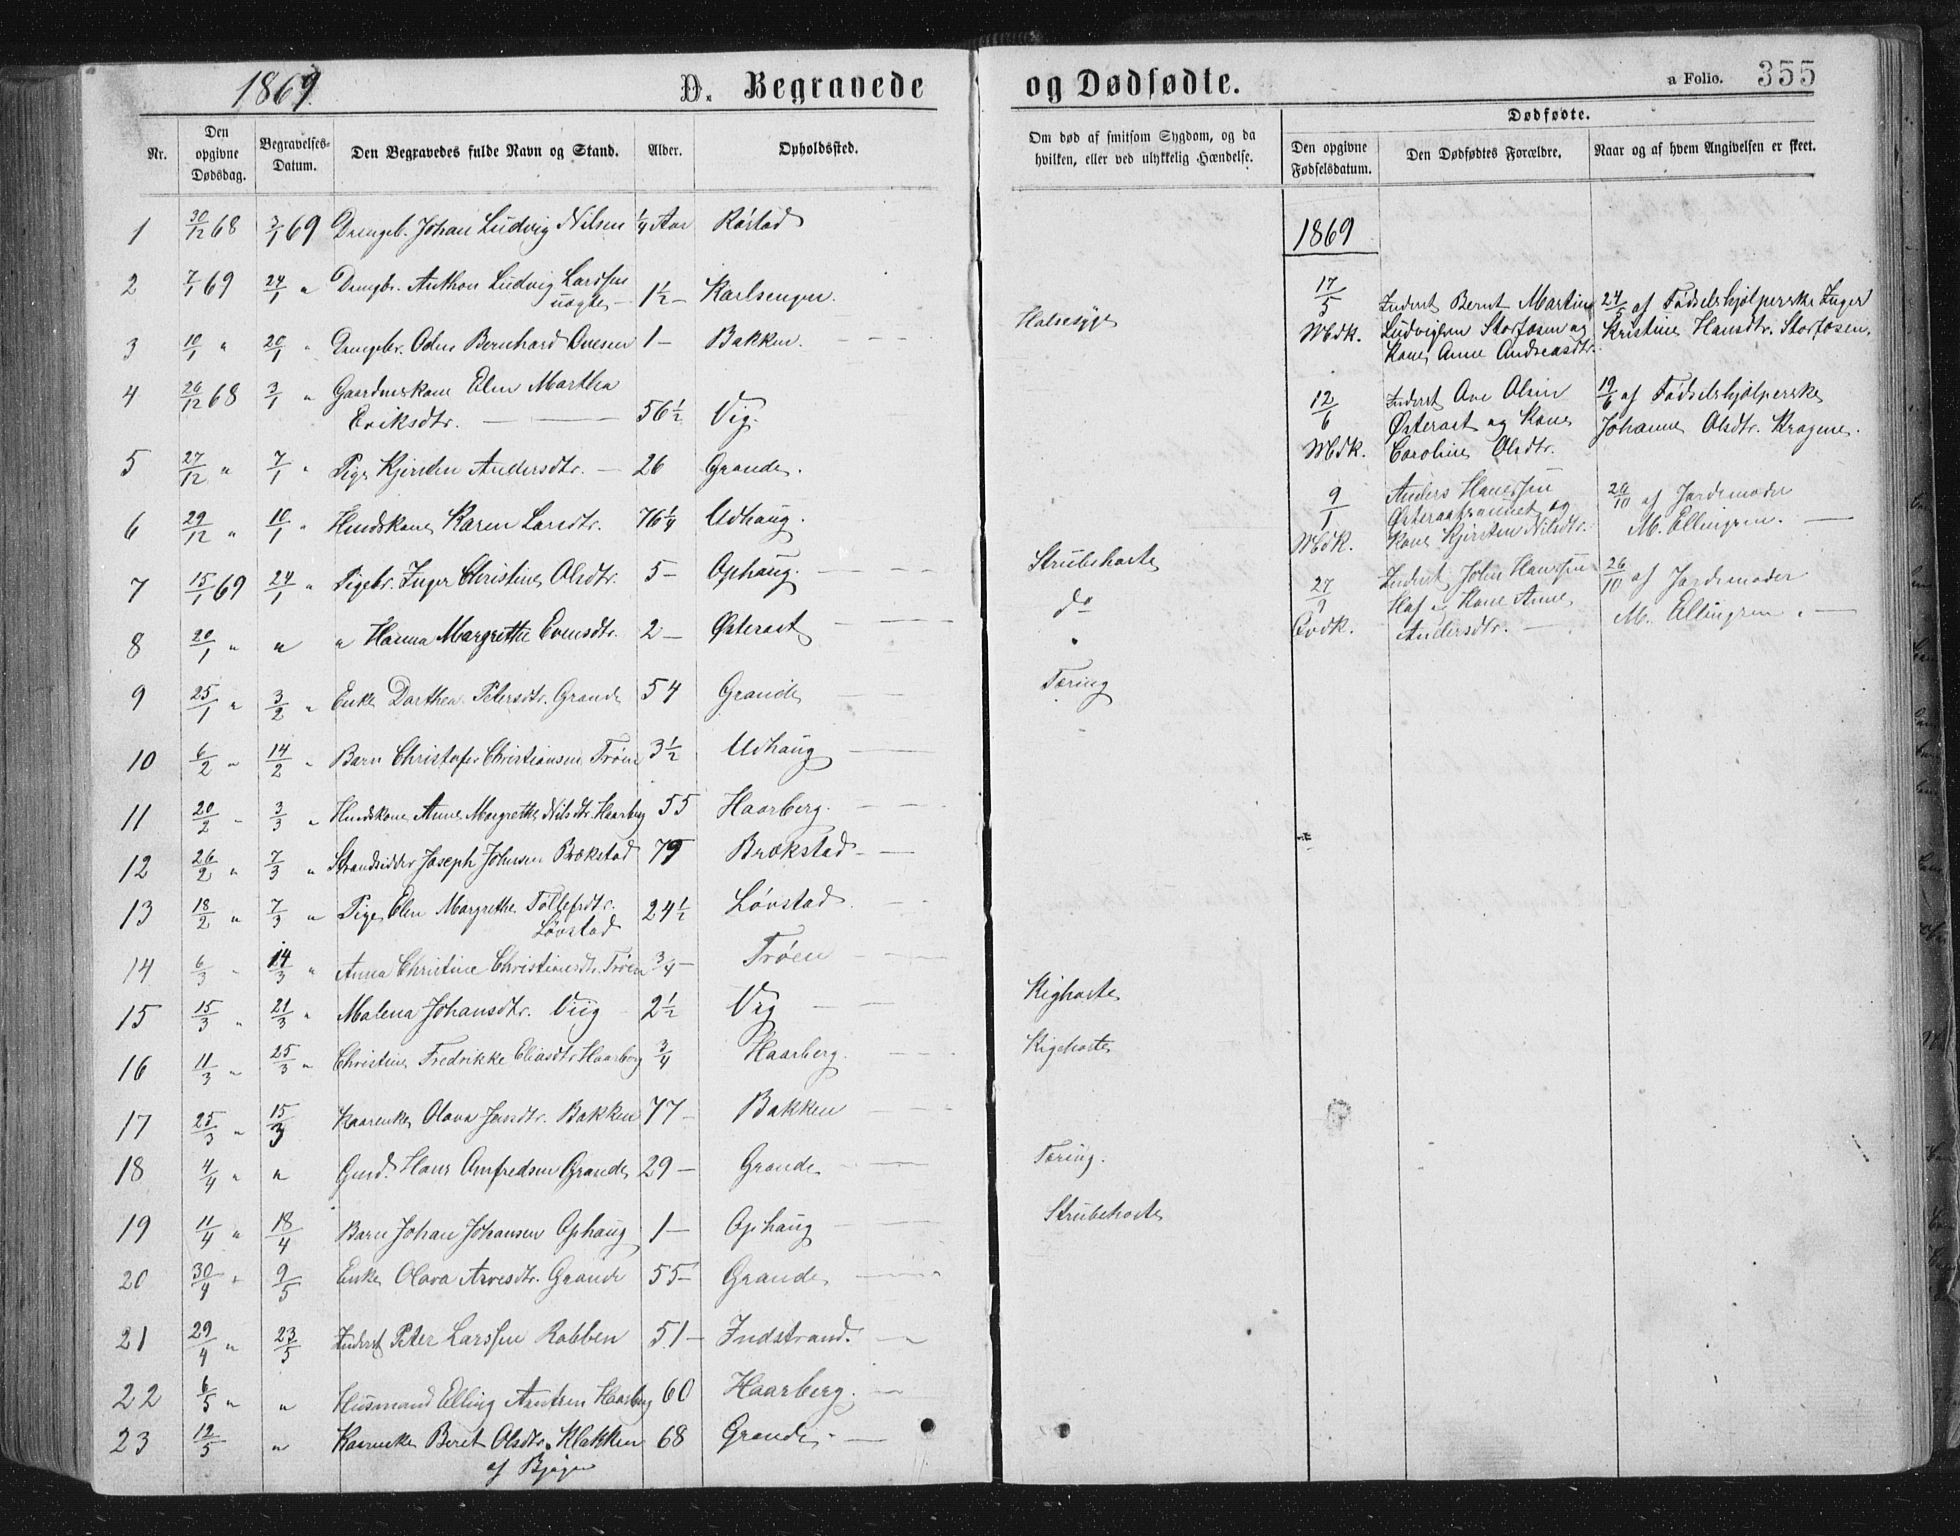 1869.
D. Begravede
og Dødfødte.
a Folio. 355
Nr.
Den opgivne Dødsdag.
Begravelses-Datum.
Den Begravedes fulde Navn og Stand.
Alder.
Opholdssted.
Om død af smitsom Sygdom, og da hvilken, eller ved ulykkelig Hændelse.
Dødfødte.
Den opgivne Fødselsdatum.
Den Dødfødtes Forældre.
Naar og af hvem Angivelsen er skeet.
1 30/12 68 3/1 69 Drengeb. Johan Ludvig Nilsen 1/4 Aar Røstad
2 7/1 69 24/1 " Drengbr. Anthon Ludvig Larssen uægte 1 1/2 — Karlsengen.
3 10/1 " 20/1 " Drengbr. Odin Bernhard Ovesen 1 — Bakken. Halsesyge
4 26/12 68 3/1 " Gaardmskone Elen Martha
Eriksdtr. 56 1/2 Vig.
5 27/12 " 7/1 " Pige Kjersten Andersdtr. — 26 Grande.
6 29/12 " 10/1 " Hmdskone Karen Larsdtr. 76 1/4 Udhaug.
7 15/1 69 24/1 " Pigebr. Inger Christine Olsdtr. 5 — Ophaug. Strubehoste
8 20/1 " " " Hanna Margrethe Evensdtr. 2 — Østeraat do
9 25/1 " 3/2 " Enke Dorthea Petersdtr. Grande 54 Grande Tæring
10 6/2 " 14/2 " Barn Christofer Christiansen Trøen 3 1/2 Udhaug
11 20/2 " 3/3 " Hmdskone Anne Margrethe Nilsdtr. Haarberg 55 Haarberg.
12 26/2 " 7/3 " Strandsidder Joseph Johnsen Brækstad 79 Brækstad
13 18/2 " 7/3 " Pige Elen Margrethe Tollefsdtr.
Løvstad 24 1/2 Løvstad.
14 6/3 " 14/3 " Anna Christine Christiansdtr. Trøen 3/4 — Trøen
15 15/3 " 21/3 " Malena Johansdtr. Viig 2 1/2 Vig Kighoste
16 11/3 " 25/3 " Christine Fredrikke Eliasdtr. Haarberg 3/4 Haarberg. Kigehoste
17 25/3 " 15/3 Kaarenke Olava Jensdtr. Bakken 77 — Bakken
18 4/4 " " Gmd. Hans Arnfredsen Grande 29 — Grande Tæring.
19 11/4 " 18/4 Barn Johan Johansen Ophaug 1 — Ophaug Strubehoste
20 30/4 " 9/5 Enke Olava Arvesdtr. Grande 55 — Grande
21 29/4 " 23/5 Inderst Peter Larssen Robben 51 — Indstrand.
22 6/5 " " Husmand Elling Arntsen Haarberg 60 Haarberg.
23 12/5 " Kaarenke Beret Olsdtr. Klakken 68 Grande
af Bjugn
1869
17/5 Mdk. Inderst Bernt Martin
Ludvigsen Storfosen og
Kone Anne Andreasdtr.
24/5 af Fødselshjælperske Inger
Kristine Hansdtr. Storfosen.
12/6 Mdk. Inderst Ove Olsen
Østeraat og Kone
Caroline Olsdtr.
19/6 af Fødselshjælperske
Johanne Olsdtr. Kragene.
9/1 Mdk. Anders Hanssen
Østeraat og
Kone Kjersten Nilsdtr.
26/10 af Jordemoder
M. Ellingsen.
27/9 Qvdk. Inderst John Hanssen
Hof og Kone Anne
Andersdtr.
26/10 af Jordemoder
M. Ellingsen.